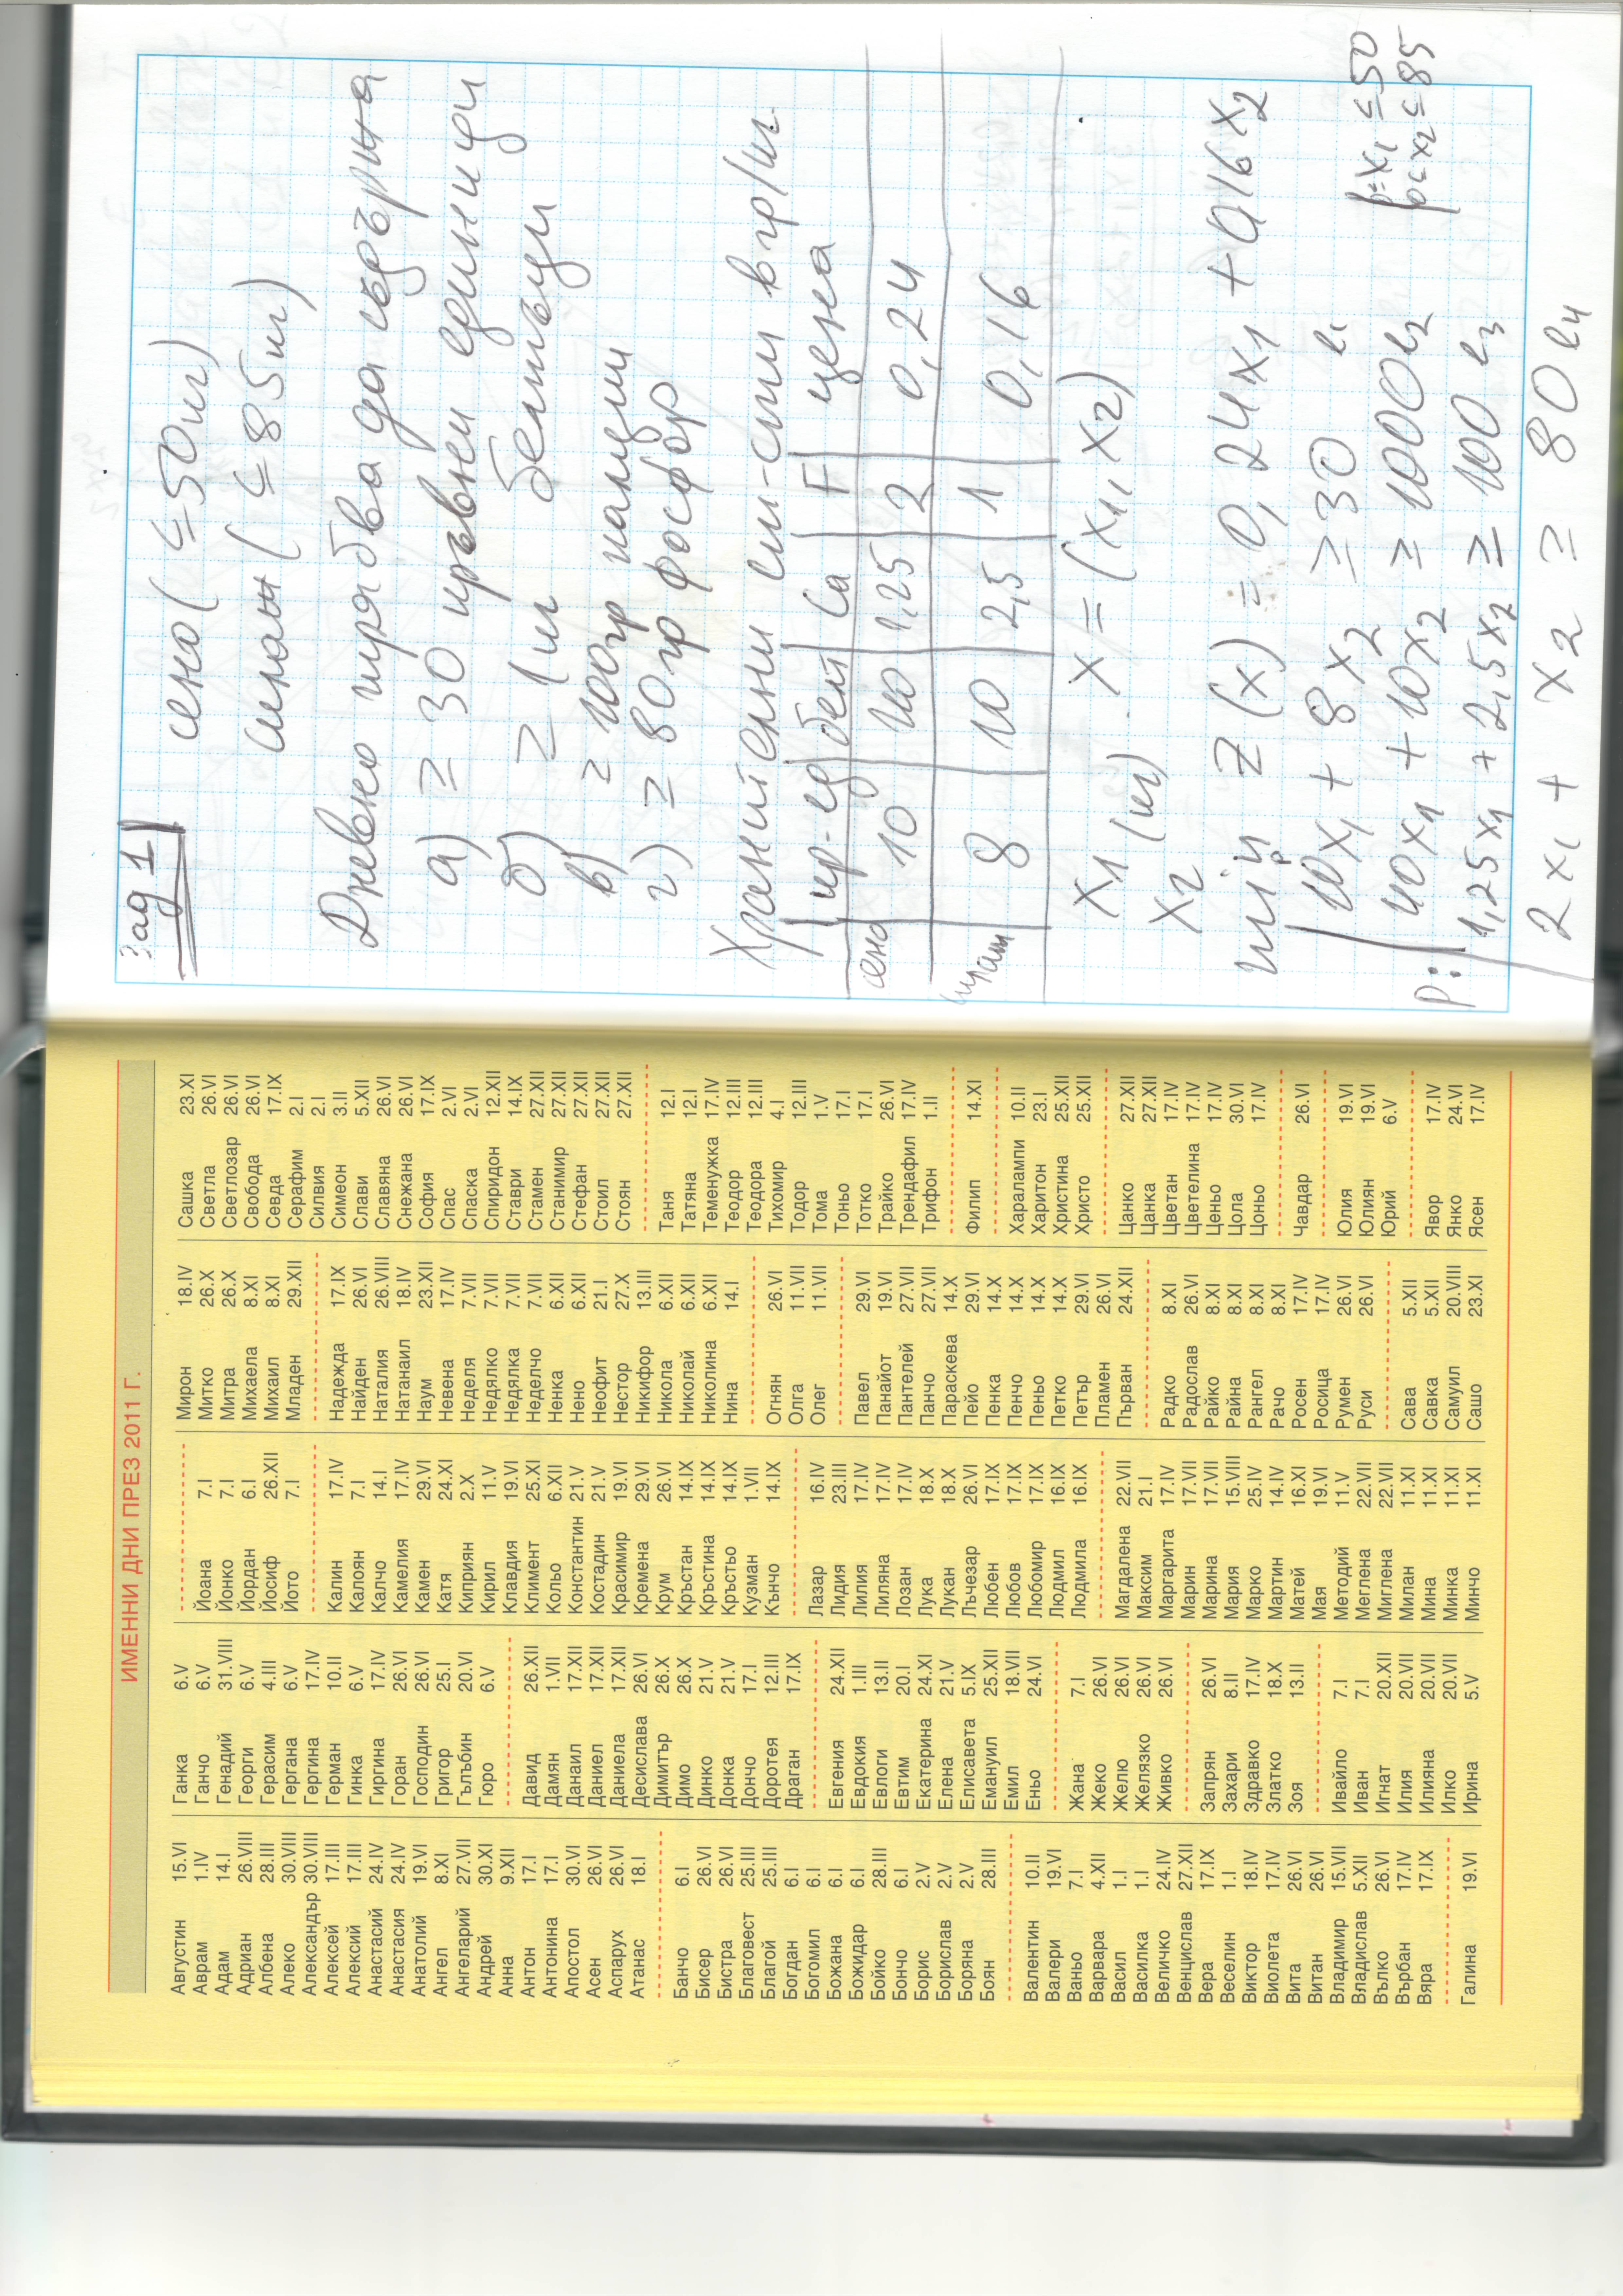 ИМЕННИ ДНИ ПРЕЗ 2011 Г.
Августин 15.VI
Аврам 1.IV
Адам 14.I
Адриан 26.VIII
Албена 28.III
Алеко 30.VIII
Александър 30.VIII
Алексей 17.III
Алексий 17.III
Анастасий 24.IV
Анастасия 24.IV
Анатолий 19.VI
Ангел 8.XI
Ангеларий 27.VII
Андрей 30.XI
Анна 9.XII
Антон 17.I
Антонина 17.I
Апостол 30.VI
Асен 26.VI
Аспарух 26.VI
Атанас 18.I
Банчо 6.I
Бисер 26.VI
Бистра 26.VI
Благовест 25.III
Благой 25.III
Богдан 6.I
Богомил 6.I
Божана 6.I
Божидар 6.I
Бойко 28.III
Бончо 6.I
Борис 2.V
Борислав 2.V
Боряна 2.V
Боян 28.III
Валентин 10.II
Валери 19.VI
Ваньо 7.I
Варвара 4.XII
Васил 1.I
Василка 1.I
Величко 24.IV
Венцислав 27.XII
Вера 17.IX
Веселин 1.I
Виктор 18.IV
Виолета 17.IV
Вита 26.VI
Витан 26.VI
Владимир 15.VII
Владислав 5.XII
Вълко 26.VI
Върбан 17.IV
Вяра 17.IX
Галина 19.VI
Ганка 6.V
Ганчо 6.V
Генадий 31.VIII
Георги 6.V
Герасим 4.III
Гергана 6.V
Гергина 17.IV
Герман 10.II
Гинка 6.V
Гиргина 17.IV
Горан 26.VI
Господин 26.VI
Григор 25.I
Гълъбин 20.VI
Гюро 6.V
Давид 26.XII
Дамян 1.VII
Данаил 17.XII
Даниел 17.XII
Даниела 17.XII
Десислава 26.VI
Димитър 26.X
Димо 26.X
Динко 21.V
Донка 21.V
Дончо 17.I
Доротея 12.III
Драган 17.IX
Евгения 24.XII
Евдокия 1.III
Евлоги 13.II
Евтим 20.I
Екатерина 24.XI
Елена 21.V
Елисавета 5.IX
Емануил 25.XII
Емил 18.VII
Еньо 24.VI
Жана 7.I
Жеко 26.VI
Желю 26.VI
Желязко 26.VI
Живко 26.VI
Запрян 26.VI
Захари 8.II
Здравко 17.IV
Златко 18.X
Зоя 13.II
Ивайло 7.I
Иван 7.I
Игнат 20.XII
Илия 20.VII
Илияна 20.VII
Илко 20.VII
Ирина 5.V
Йоана 7.I
Йонко 7.I
Йордан 6.I
Йосиф 26.XII
Йото 7.I
Калин 17.IV
Калоян 7.I
Калчо 14.I
Камелия 17.IV
Камен 29.VI
Катя 24.XI
Киприян 2.X
Кирил 11.V
Клавдия 19.VI
Климент 25.XI
Кольо 6.XII
Константин 21.V
Костадин 21.V
Красимир 19.VI
Кремена 29.VI
Крум 26.VI
Кръстан 14.IX
Кръстина 14.IX
Кръстьо 14.IX
Кузман 1.VII
Кънчо 14.IX
Лазар 16.IV
Лидия 23.III
Лилия 17.IV
Лиляна 17.IV
Лозан 17.IV
Лука 18.X
Лукан 18.X
Лъчезар 26.VI
Любен 17.IX
Любов 17.IX
Любомир 17.IX
Людмил 16.IX
Людмила 16.IX
Магдалена 22.VII
Максим 21.I
Маргарита 17.IV
Марин 17.VII
Марина 17.VII
Мария 15.VIII
Марко 25.IV
Мартин 14.IV
Матей 16.XI
Мая 19.VI
Методий 11.V
Меглена 22.VII
Миглена 22.VII
Милан 11.XI
Мина 11.XI
Минка 11.XI
Минчо 11.XI
Мирон 18.IV
Митко 26.X
Митра 26.X
Михаела 8.XI
Михаил 8.XI
Младен 29.XII
Надежда 17.IX
Найден 26.VI
Наталия 26.VIII
Натанаил 18.IV
Наум 23.XII
Невена 17.IV
Неделя 7.VII
Недялко 7.VII
Недялка 7.VII
Неделчо 7.VII
Ненка 6.XII
Нено 6.XII
Неофит 21.I
Нестор 27.X
Никифор 13.III
Никола 6.XII
Николай 6.XII
Николина 6.XII
Нина 14.I
Огнян 26.VI
Олга 11.VII
Олег 11.VII
Павел 29.VI
Панайот 19.VI
Пантелей 27.VII
Панчо 27.VII
Параскева 14.X
Пейо 29.VI
Пенка 14.X
Пенчо 14.X
Пеньо 14.X
Петко 14.X
Петър 29.VI
Пламен 26.VI
Първан 24.XII
Радко 8.XI
Радослав 26.VI
Райко 8.XI
Райна 8.XI
Рангел 8.XI
Рачо 8.XI
Росен 17.IV
Росица 17.IV
Румен 26.VI
Руси 26.VI
Сава 5.XII
Савка 5.XII
Самуил 20.VIII
Сашо 23.XI
Сашка 23.XI
Светла 26.VI
Светлозар 26.VI
Свобода 26.VI
Севда 17.IX
Серафим 2.I
Силвия 2.I
Симеон 3.II
Слави 5.XII
Славяна 26.VI
Снежана 26.VI
София 17.IX
Спас 2.VI
Спаска 2.VI
Спиридон 12.XII
Ставри 14.IX
Стамен 27.XII
Станимир 27.XII
Стефан 27.XII
Стоил 27.XII
Стоян 27.XII
Таня 12.I
Татяна 12.I
Теменужка 17.IV
Теодор 12.III
Теодора 12.III
Тихомир 4.I
Тодор 12.III
Тома 1.V
Тоньо 17.I
Тотко 17.I
Трайко 26.VI
Трендафил 17.IV
Трифон 1.II
Филип 14.XI
Харалампи 10.II
Харитон 23.I
Христина 25.XII
Христо 25.XII
Цанко 27.XII
Цанка 27.XII
Цветан 17.IV
Цветелина 17.IV
Ценьо 17.IV
Цола 30.VI
Цоньо 17.IV
Чавдар 26.VI
Юлия 19.VI
Юлиян 19.VI
Юрий 6.V
Явор 17.IV
Янко 24.VI
Ясен 17.IV
Зад 1
сено (≤50кг)
силаж (≤85кг)
Дневно трябва да съдържа
а) ≥ 30 кръвни единици
б) ≥ 1кг белтъци
в) ≥ 100гр калции
г) ≥ 80гр фосфор
Хранителни в гр/кг.
кр-ед белт Ca F цена
сено 10 40 1,25 2 0,24
8 10 2,5 1 0,16
x1 (кг) x = (x1, x2)
x2
min z(x) = 0,24x1 + 0,16x2
10x1 + 8x2 ≥ 30 l1
40x1 + 10x2 ≥ 1000 l2
P: 1,25x1 + 2,5x2 ≥ 100 l3
2x1 + x2 ≥ 80 l4
0≤x1 ≤50
0≤x2 ≤85